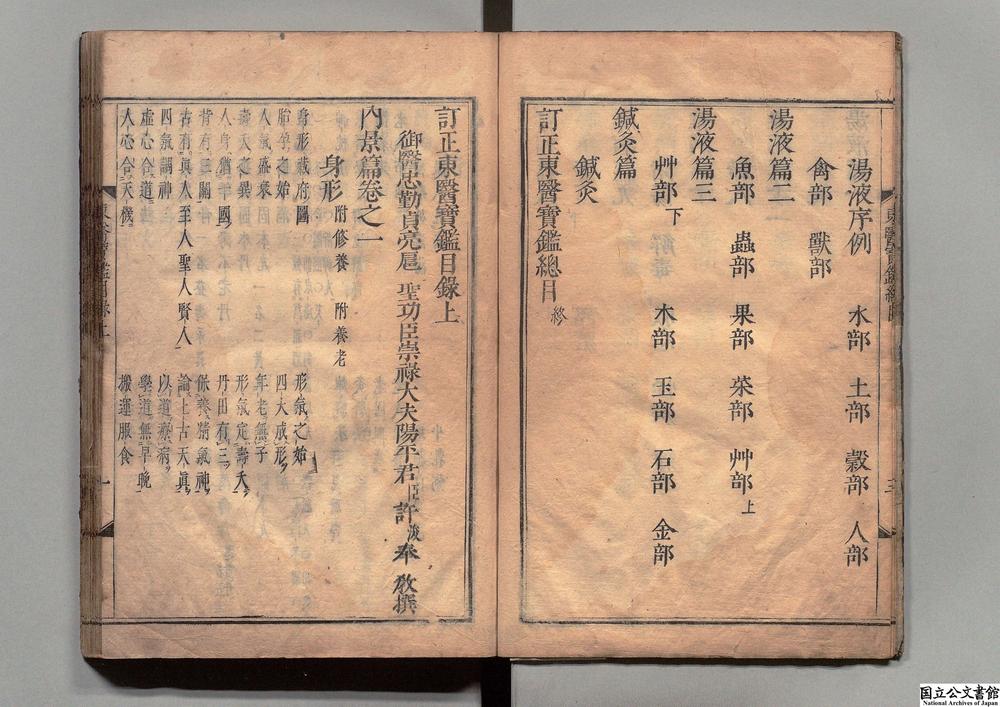 湯液序例 水部 土部 穀部 人部
禽部 獸部
湯液篇二
魚部 蟲部 果部 菜部 艸部上
湯液篇三
艸部下 木部 玉部 石部 金部
鍼灸篇
鍼灸
訂正東醫寶鑑總目 終
訂正東醫寶鑑目錄上
御醫忠勤貞亮扈 聖功臣崇祿大夫陽平君臣許浚奉 敎撰
內景篇卷之一
身形 附修養 附養老
身形藏府圖 形氣之始
胎孕之始 四大成形
人氣盛衰 年老無子
壽夭之異 形氣定壽夭
人身猶一國 丹田有三
背有三關 保養精氣神
古有眞人至人聖人賢人 論上古天眞
四氣調神 以道療病
虛心合道 學道無早晩
人心合天機 搬運服食
東醫寶鑑目錄上 一
国立公文書館
National Archives of Japan